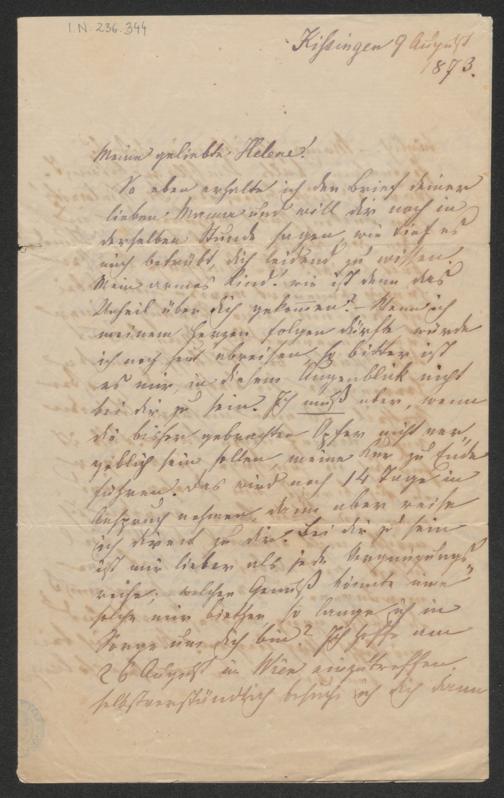 I.N. 236.344
Kissingen 9 August
1873.
Meine geliebte Helene!
So eben erhalte ich den Brief deiner
lieben Mama und will dir noch in
derselben Stunde sagen, wie tief es
mich betrübt, dich leidend zu wissen.
Mein armes Kind! wie ist denn das
Unheil über dich gekommen? Wenn ich
meinem Herzen folgen dürfte würde
ich noch heut abreisen, so bitter ist
es mir, in diesem Augenblick nicht
bei dir zu sein. Ich muß aber, wenn
die bisher gebrachten Opfer nicht ver
geblich sein sollen, meine Kur zu Ende
führen. Das wird noch 14 Tage in
Anspruch nehmen, dann aber reise
ich direct zu dir. Bei dir zu sein
ist mir lieber als jede Vergnügungs
reise; welchen Genuß könnte eine
solche mir bieten so lange ich in
Sorge um dich bin? Ich hoffe am
26 August in Wien einzutreffen,
selbstverständlich besuche ich dich dann